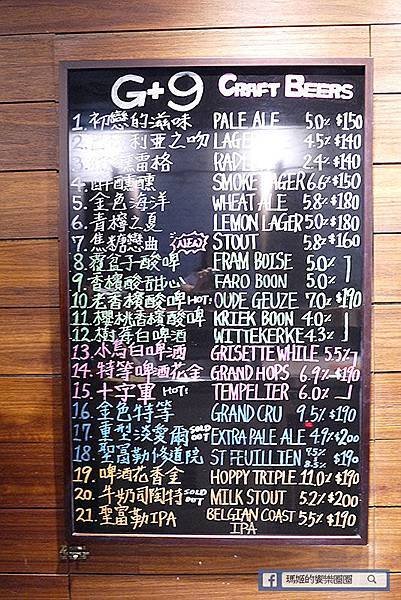 G+9 CRAFT BEERS
1. 初戀的滋味 PALE ALE 5.0% $150
2. 利亞之吻 LAGER 4.5% $140
3. 雷格 RADLER 2.4% $140
4. 醉醺醺 SMOKE LAGER 6.6% $150
5. 金色海洋 WHEAT ALE 5.8% $180
6. 青檸之夏 LEMON LAGER 5.0% $180
7. 焦糖戀曲 NEW STOUT 5.8% $160
8. 覆盆子酸啤 FRAM BOISE 5.0%
9. 香檳酸甜心 FARO BOON 5.0%
10. 老香檳酸啤 HOT! OUDE GEUZE 7.0% $190
11. 櫻桃香檳酸啤 KRIEK BOON 4.0%
12. 樹莓白啤酒 WITTEKERKE 4.3%
13. 小鳥白啤酒 GRISETTE WHILE 5.5%
14. 特等啤酒花金 GRAND HOPS 6.9% $190
15. 十字軍 HOT! TEMPELIER 6.0%
16. 金色特等 GRAND CRU 9.5% $190
17. 重型淡愛爾 SOLD OUT EXTRA PALE ALE 4.9% $200
18. 聖富勒修道院 ST FEUILLIEN 7.5% 8.5% $190
19. 啤酒花香金 HOPPY TRIPLE 11.0% $190
20. 牛奶司陶特 SOLD OUT MILK STOUT 5.2% $200
21. 聖富勒IPA BELGIAN COAST IPA 5.5% $190
瑪姬的饗樂圈圈